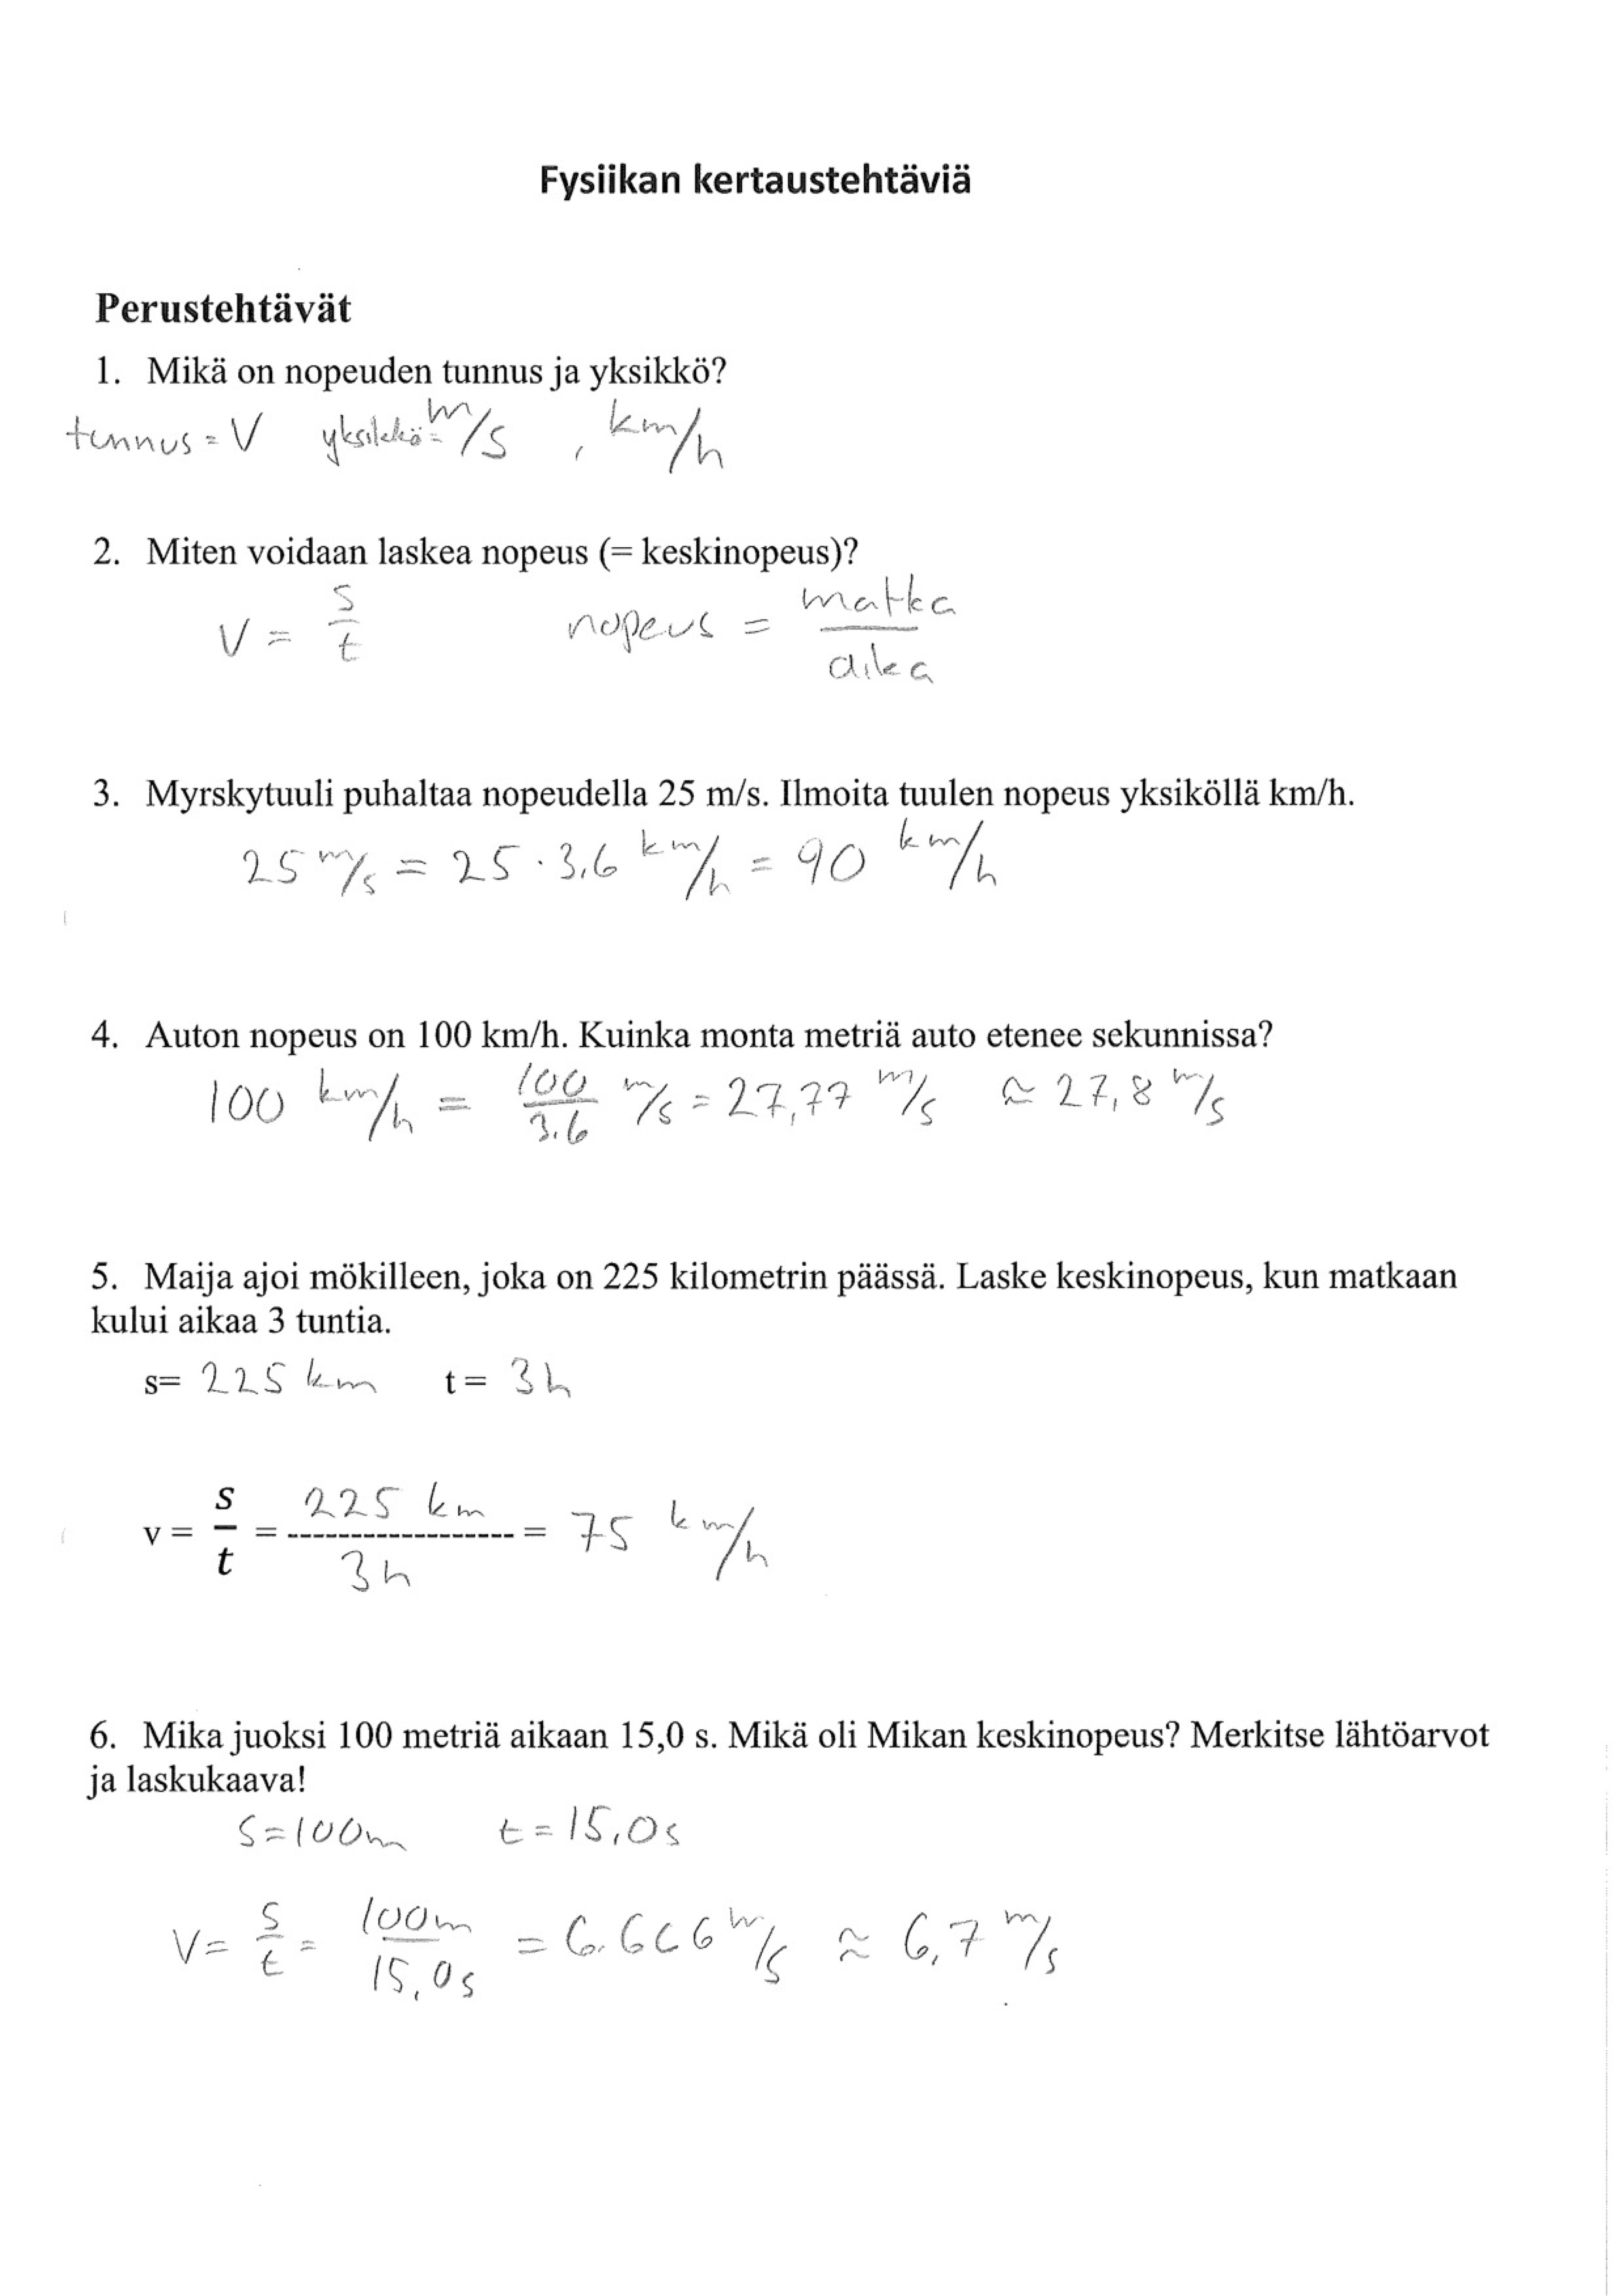 Fysiikan kertaustehtäviä
Perustehtävät
1. Mikä on nopeuden tunnus ja yksikkö?
tunnus = V yksikkö = m/s , km/h
2. Miten voidaan laskea nopeus (= keskinopeus)?
V = s/t nopeus = matka/aika
3. Myrskytuuli puhaltaa nopeudella 25 m/s. Ilmoita tuulen nopeus yksiköllä km/h.
25 m/s = 25 · 3,6 km/h = 90 km/h
4. Auton nopeus on 100 km/h. Kuinka monta metriä auto etenee sekunnissa?
100 km/h = 100/3.6 m/s = 27,77 m/s ≈ 27,8 m/s
5. Maija ajoi mökilleen, joka on 225 kilometrin päässä. Laske keskinopeus, kun matkaan
kului aikaa 3 tuntia.
s= 225 km t = 3h
v = s/t = 225 km/3h = 75 km/h
6. Mika juoksi 100 metriä aikaan 15,0 s. Mikä oli Mikan keskinopeus? Merkitse lähtöarvot
ja laskukaava!
S=100m t = 15,0s
V = s/t = 100m/15,0s = 6.666 m/s ≈ 6,7 m/s